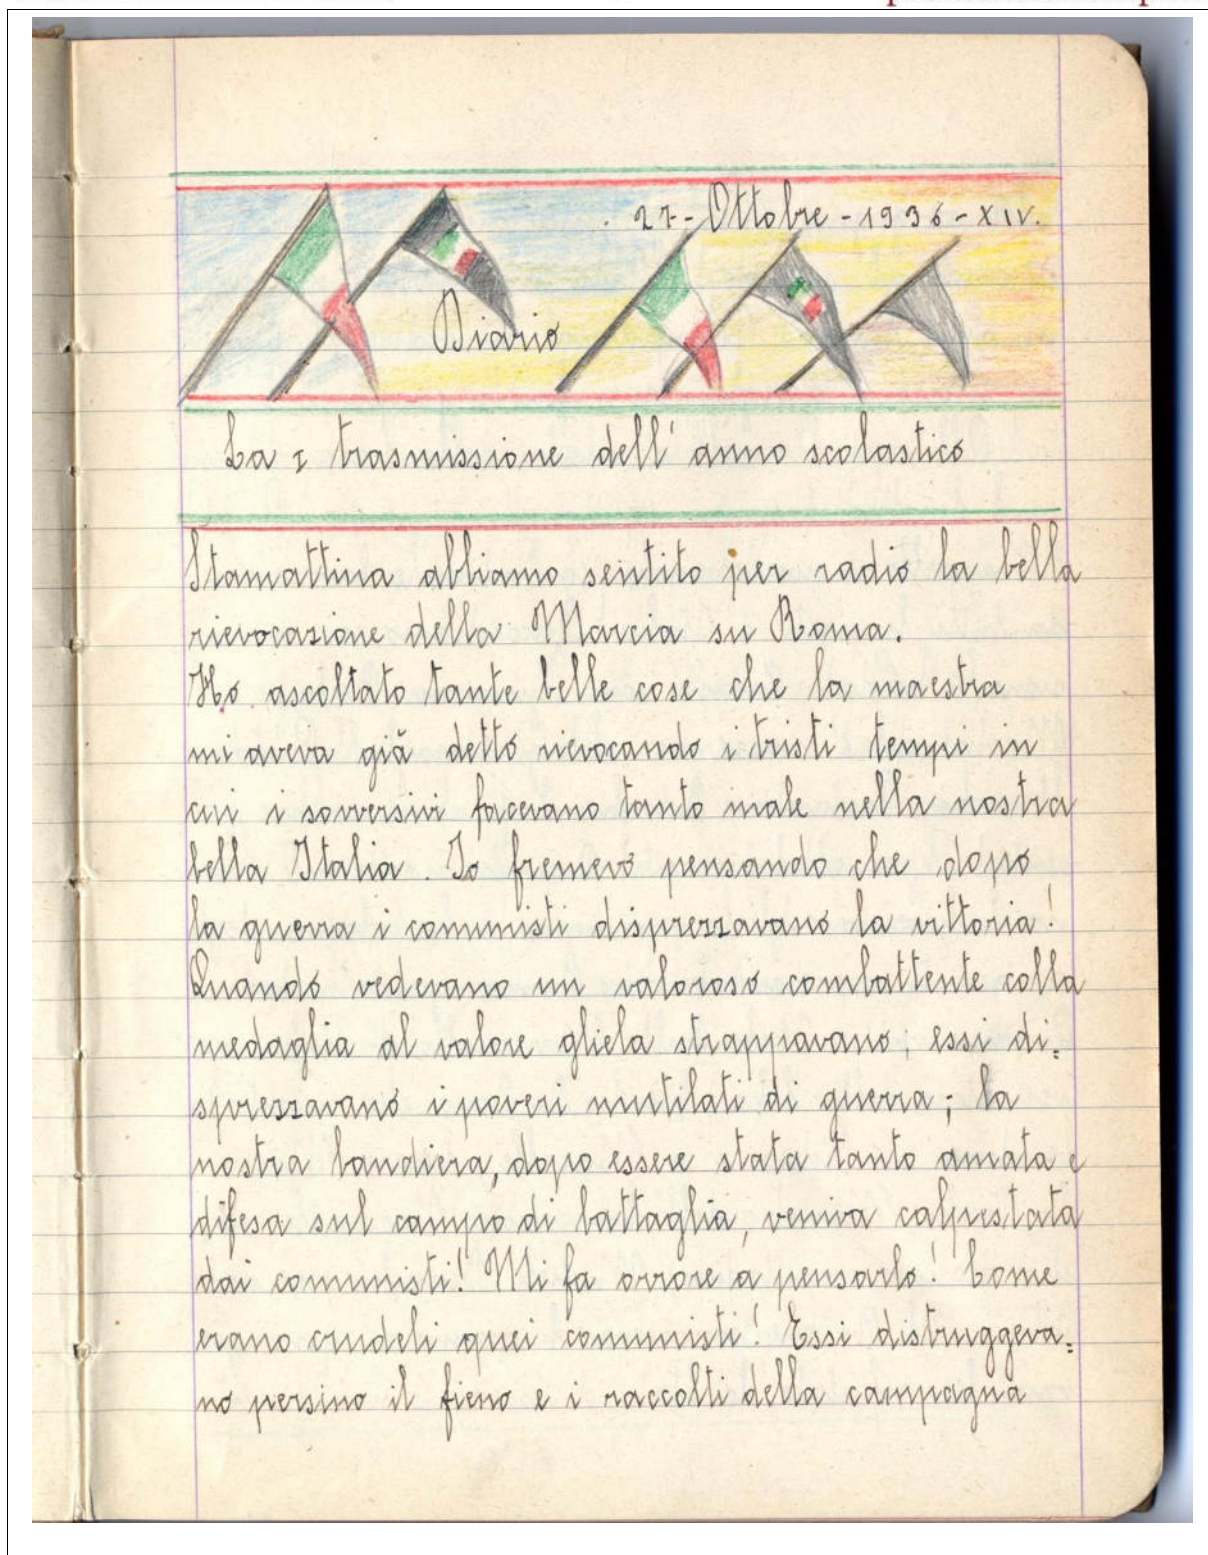 27-Ottobre-1936-XIV.
Diario
La I trasmissione dell'anno scolastico
Stamattina abbiamo sentito per radio la bella
rievocazione della Marcia su Roma.
Ho ascoltato tante belle cose che la maestra
mi aveva già detto rievocando i tristi tempi in
cui i sovversivi facevano tanto male nella nostra
bella Italia. Io fremevo pensando che dopo
la guerra i comunisti disprezzavano la vittoria!
Quando vedevano un valoroso combattente colla
medaglia al valore gliela strappavano; essi di=
sprezzavano i poveri mutilati di guerra; la
nostra bandiera, dopo essere stata tanto amata e
difesa sul campo di battaglia, veniva calpestata
dai comunisti! Mi fa orrore a pensarlo! Come
erano crudeli quei comunisti! Essi distruggeva=
no persino il fieno e i raccolti della campagna